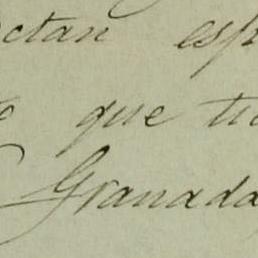 ctan esp
que ti
Granada